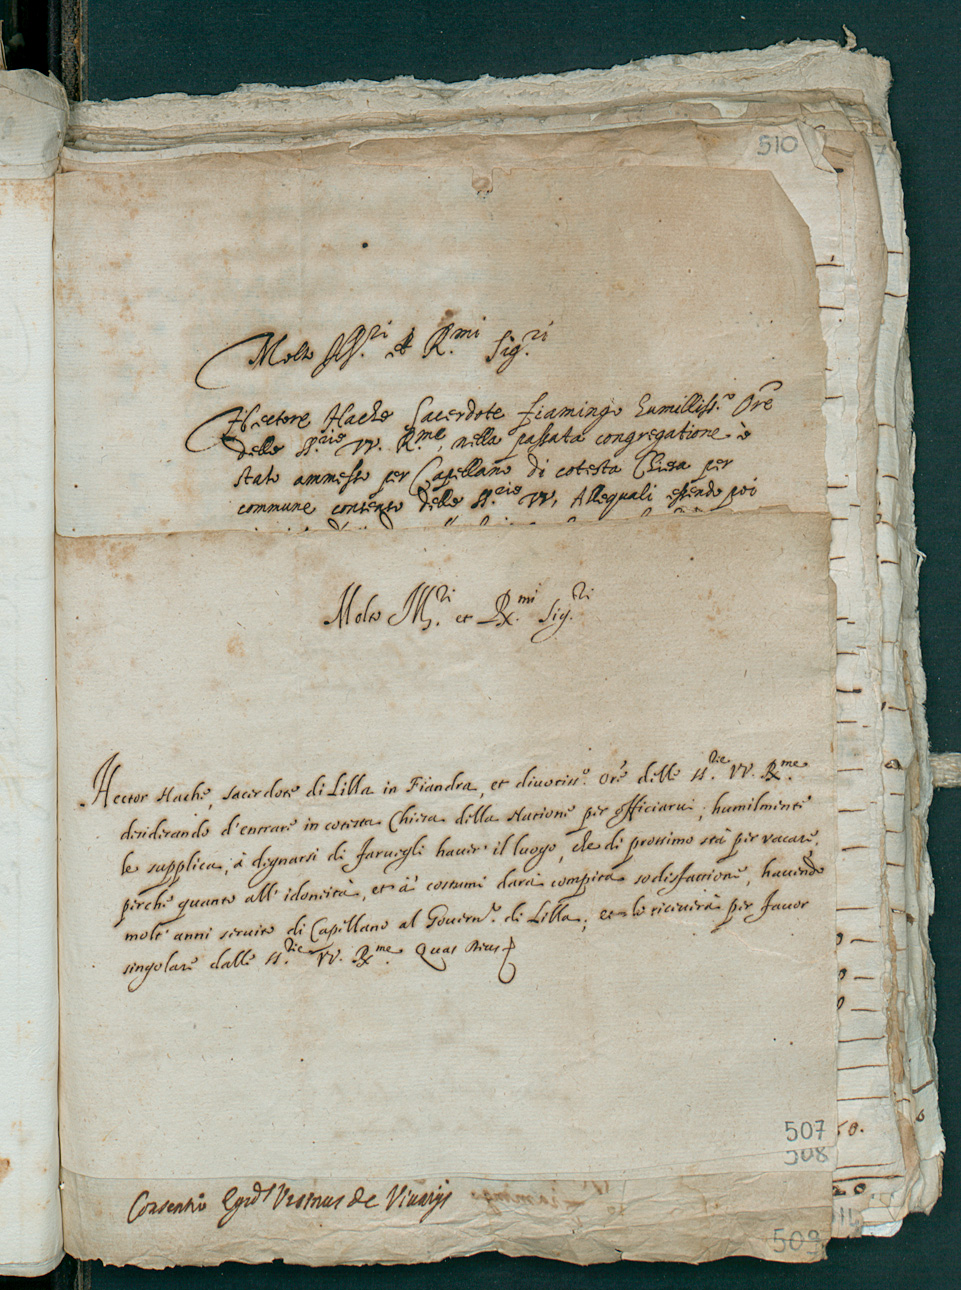 510
7
Molto Ill.ri et R.mi Sig.ri
Hectore Hache Sacerdote fiamingo humilliss.o Ore
delle SS.rie VV. R.me, nella passata congregatione è
stato ammesso per Capellano di cotesta Chiesa per
commune contento delle SS.rie VV, Allequali essendo poi
Molto Ill.ri et R.mi Sig.ri
Hector Hache, sacerdote di Lilla in Fiandra, et divotiss.o Ore delle SS.rie VV. R.me
desiderando d'entrare in cotesta Chiesa della Natione per officiarvi, humilmente
le supplica, à degnarsi di farvegli haver' il luogo, che di prossimo stà per vacare,
perche quanto all' idoneità, et a' costumi darà compita sodisfattione, havendo
molt' anni servito di Capellano al Govern.e di Lilla, et lo riceverà per favor
singolare dalle SS.rie VV. R.me Quas Deus
507
508
Consentio de Vivarijs
509